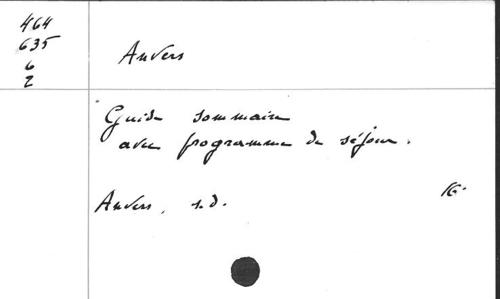 464
635
6
2
Anvers
Guide sommaire
avec programme de séjour.
Anvers, s.d.